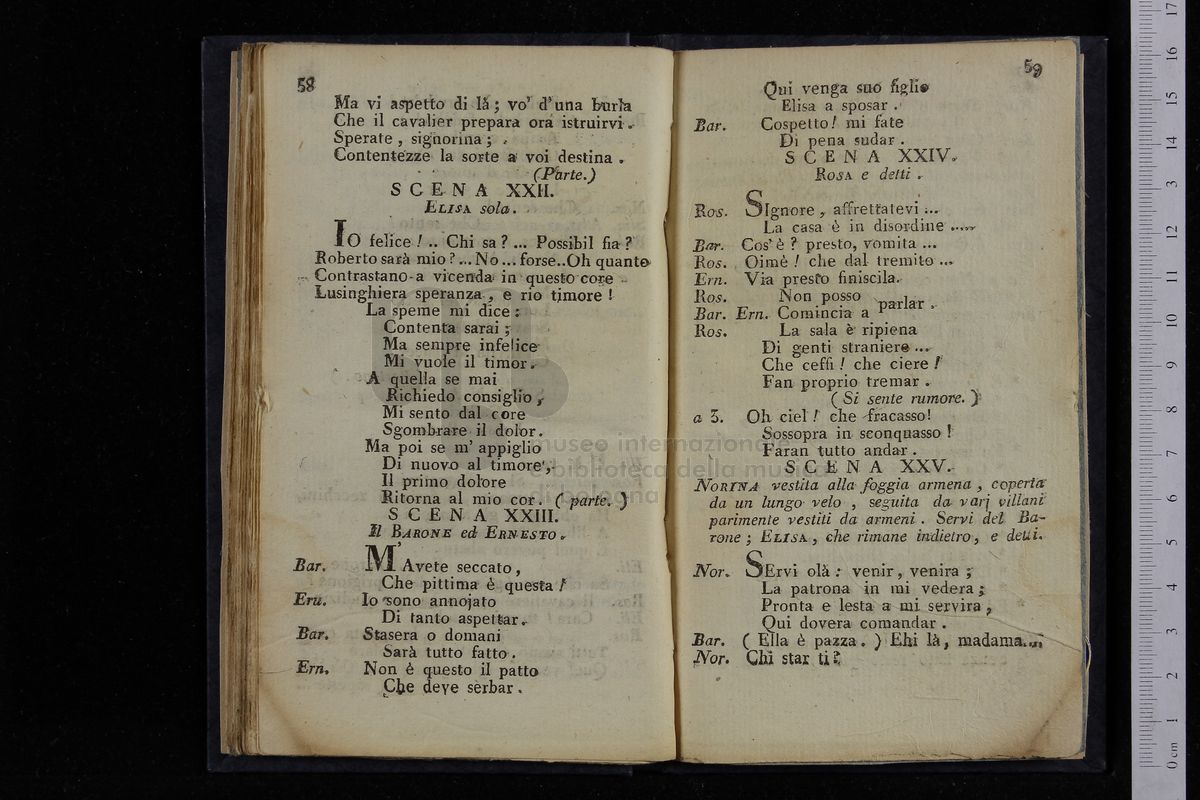 58
Ma vi aspetto di là; vo' d'una burla
Che il cavalier prepara ora istruirvi.
Sperate, signorina;
Contentezze la sorte a voi destina.
(Parte.)
SCENA XXII.
ELISA sola.
IO felice! .. Chi sa? ... Possibil fia?
Roberto sarà mio? ... No ... forse.. Oh quante
Contrastano a vicenda in questo core
Lusinghiera speranza, e rio timore!
La speme mi dice:
Contenta sarai;
Ma sempre infelice
Mi vuole il timor.
A quella se mai
Richiedo consiglio,
Mi sento dal core
Sgombrare il dolor.
Ma poi se m' appiglio
Di nuovo al timore,
Il primo dolore
Ritorna al mio cor. (parte.)
SCENA XXIII.
Il BARONE ed ERNESTO.
Bar. M'Avete seccato,
Che pittima è questa!
Eru. Io sono annojato
Di tanto aspettar.
Bar. Stasera o domani
Sarà tutto fatto.
Ern. Non è questo il patto
Che deve serbar.
59
Qui venga suo figlio
Elisa a sposar.
Bar. Cospetto! mi fate
Di pena sudar.
SCENA XXIV.
ROSA e detti.
Ros. SIgnore, affrettatevi ...
La casa è in disordine .....
Bar. Cos'è? presto, vomita ...
Ros. Oimè! che dal tremito ...
Ern. Via presto finiscila.
Ros. Non posso parlar.
Bar. Ern. Comincia a
Ros. La sala è ripiena
Di genti straniere ...
Che ceffi! che ciere!
Fan proprio tremar.
(Si sente rumore.)
a 3. Oh ciel! che fracasso!
Sossopra in sconquasso!
Faran tutto andar.
SCENA XXV.
NORINA vestita alla foggia armena, coperta
da un lungo velo, seguita da varj villani
parimente vestiti da armeni. Servi del Ba-
rone; ELISA, che rimane indietro, e detti.
Nor. SErvi olà: venir, venira;
La patrona in mi vedera;
Pronta e lesta a mi servira,
Qui dovera comandar.
Bar. (Ella è pazza.) Ehi là, madama...
Nor. Chi star ti?
museo internazionale
e biblioteca della musica
di bologna
0 cm 1 2 3 4 5 6 7 8 9 10 11 12 13 14 15 16 17